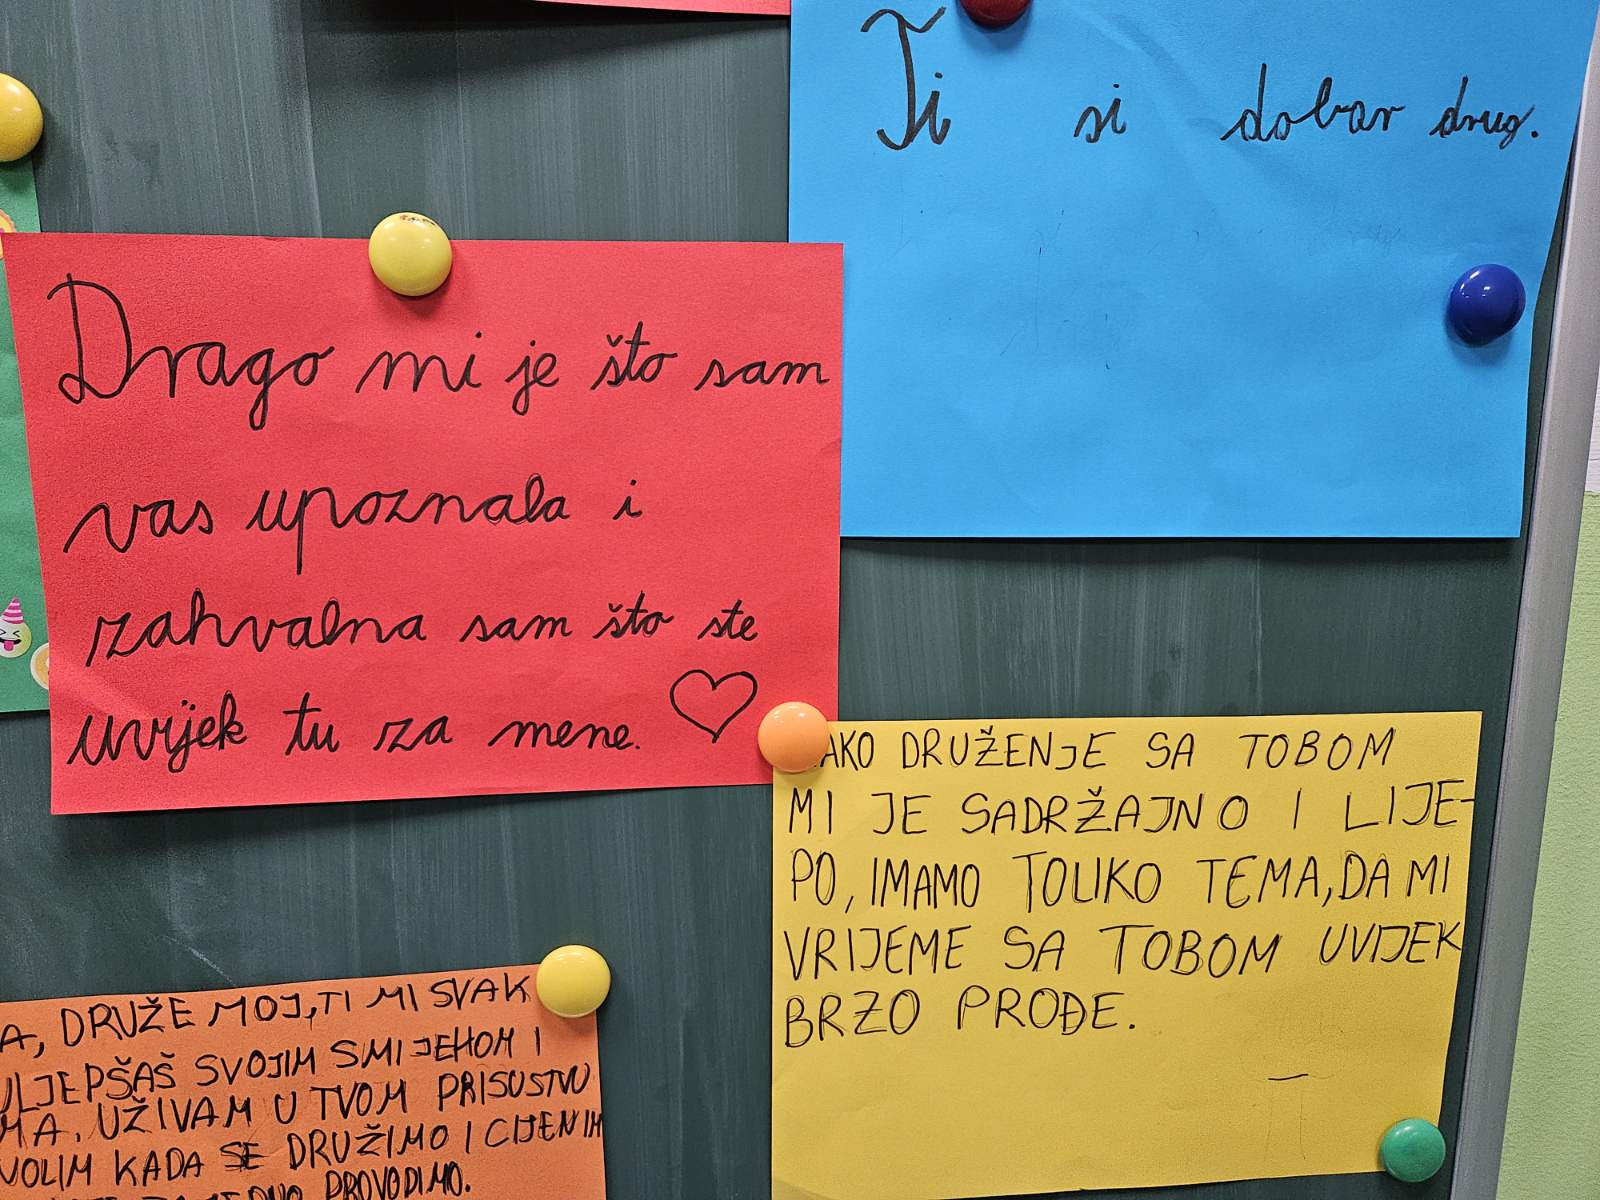 Ti si dobar drug.
Drago mi je što sam
vas upoznala i
zahvalna sam što ste
uvijek tu za mene.
DRUŽENJE SA TOBOM
MI JE SADRŽAJNO I LIJE-
PO, IMAMO TOLIKO TEMA, DA MI
VRIJEME SA TOBOM UVIJEK
BRZO PROĐE.
DRUŽE MOJ, TI MI SVAK
ULJEPŠAŠ SVOJIM SMIJEHOM I
UŽIVAM U TVOM PRISUSTVU
KADA SE DRUŽIMO I CIJENIM
PROVODIMO.